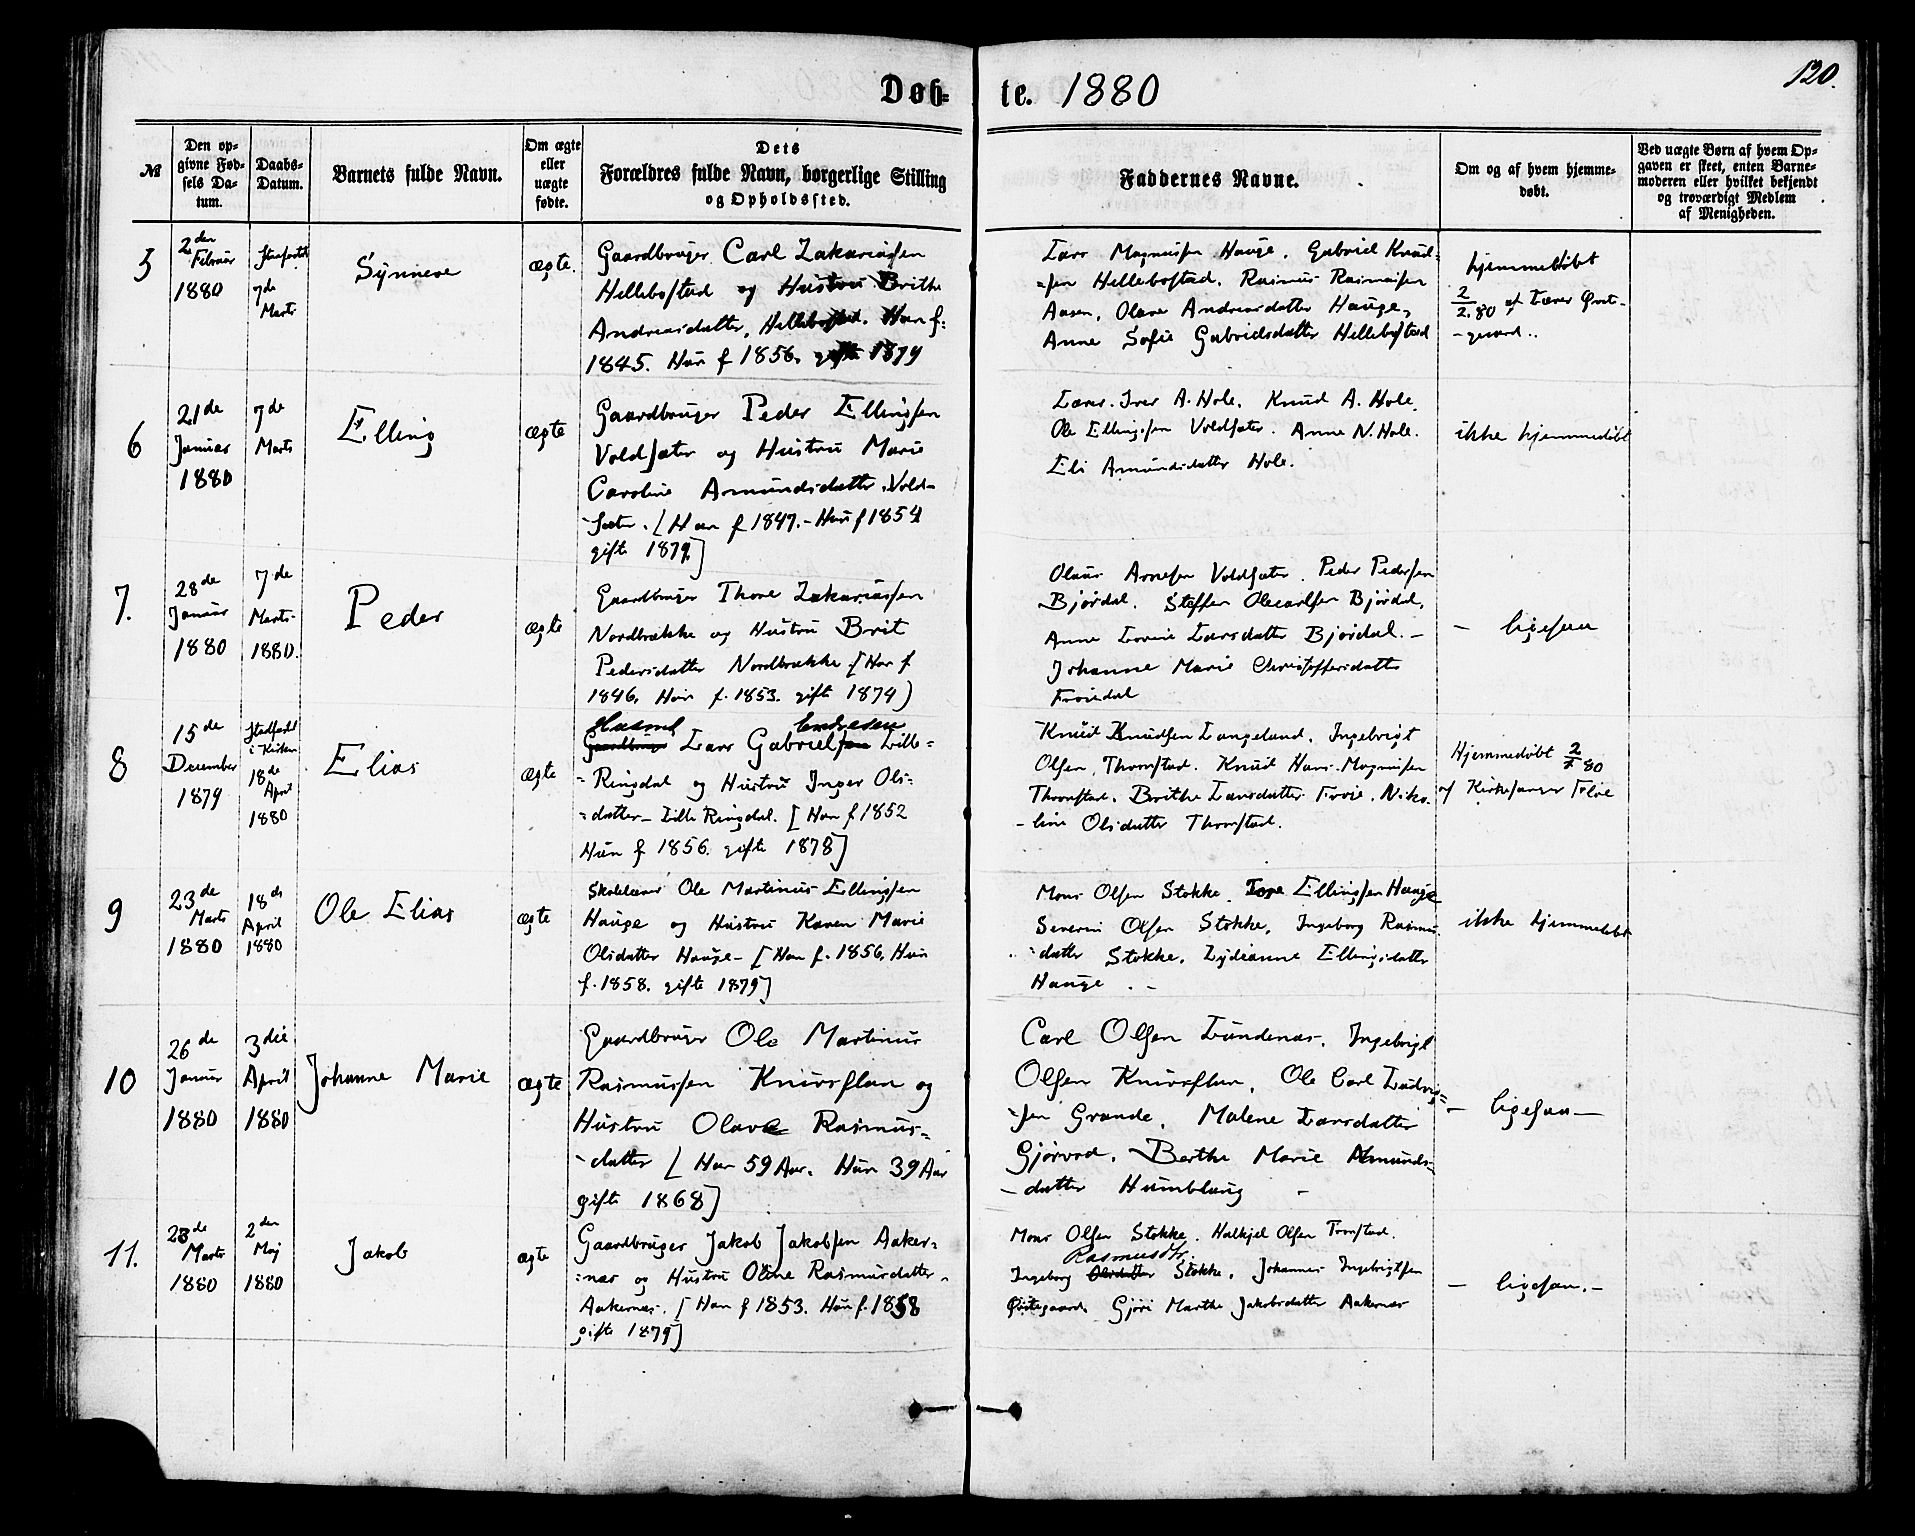 120.
Døb-te. 1880
№
Den op-
givne Fød-
sels Da-
tum.
Daabs-
Datum.
Barnets fulde Navn.
Om ægte
eller
uægte
fødte.
Dets
Forældres fulde Navn, borgerlige Stilling
og Opholdssted.
Faddernes Navne.
Om og af hvem hjemme-
døbt.
Ved uægte Børn af hvem Op-
gaven er skeet, enten Barne-
moderen eller hvilket bekjendt
og troværdigt Medlem
af Menigheden.
5
2den
Februar
1880
7de
Marts
Synneve
ægte.
Gaardbruger Carl Zakariassen
Hellebostad og Hustru Brithe
Andreasdatter, Hellebostad. Han f.
1845. Hun f 1856. gifte 1879
Lars Magnussen Hauge. Gabriel Knud-
-sen Hellebostad. Rasmus Rasmussen
Aasen. Olave Andreasdatter Hauge,
Anne Sofie Gabrielsdatter Hellebostad
hjemmedøbt
2/2.80 af Lærer Øvst-
-gaard..
6
21de
Januar
1880
7de
Marts
Elling
ægte
Gaardbruger Peder Ellingsen
Voldsæter og Hustru Marie
Caroline Amundsdatter Vold-
-sæter. [Han f 1847. - Hun f 1854
gifte 1879]
Lærer. Iver A. Hole. Knud A. Hole.
Ole Ellingsen Voldsæter. Anne N. Hole.
Eli Amundsdatter Hole.
ikke hjemmedøbt
7.
28de
Januar
1880
7de
Marts
1880.
Peder
ægte
Gaardbruger Thore Zakariassen
Nordbrække og Hustru Brit
Pedersdatter Nordbrække. [Han f
1846, Hun f. 1853. gifte 1874)
Olaus Arnesen Voldsæter. Peder Pedersen
Bjørdal. Steffen Olecarlsen Bjørdal.
Anne Lovise Larsdatter Bjørdal. -
Johanne Marie Christoffersdatter
- ligesaa
8
15de
December
1879
Stadfæst
i Kirken
18de
April
1880
Elias
ægte
Husmd Endresen
Gaardbruger Lars Gabrielsen Lille-
-Ringdal og Hustru Inger Ols-
-datter - Lille Ringdal. [Han f 1852
Hun f 1856. gifte 1878]
Knud Knudsen Langeland, Ingebrigt
Olsen, Thomstad. Knud Hans. Magnussen
Thomstad. Brithe Larsdatter Frøie. Niko-
-line Olsdatter Thomstad.
Hjemmedøbt 2/1 80
af Kirkesanger Fløe
9
23de
Marts
1880
18de
April
1880
Ole Elias
ægte
Skolelærer Ole Martinus Ellingsen
Hauge og Hustru Karen Marie
Olsdatter Hauge - [Han f. 1856, Hun
f. 1858. gifte 1879]
Mons Olsen Stokke. Tore Ellingsen Hauge
Severin Olsen Stokke. Ingeborg Rasmus-
-datter Stokke. Lydianne Ellingsdatter
Hauge. -
ikke hjemmedøbt
10
26de
Januar
1880
3die
April
1880
Johanne Marie
ægte
Gaardbruger Ole Martinus
Rasmussen Knivsflaa og
Hustru Olave Rasmus-
-datter [Han 59 Aar. Hun 39 Aar
gifte 1868]
Carl Olsen Lundenæs, Ingebrigt
Olsen Knivsflaa, Ole Carl Ludvig-
-sen Grande, Malene Larsdatter
Gjørvad. Berthe Marie Amunds-
-datter Humblaug -
- ligesaa -
11.
28de
Marts
1880
2den
Maj
1880
Jakob
ægte
Gaardbruger Jakob Jakobsen Aaker-
-næs og Hustru Oline Rasmusdatter
Aakernæs. [Han f 1853. Hun f. 1858
gifte 1879]
Mons Olsen Stokke. Halkjel Olsen Tomstad.
Rasmusdtr.
Ingeborg Olsdatter Stokke, Johannes Ingebrigtsen
Østegaard. Gjøri Marthe Jakobsdatter Aakernæs
- ligesaa. -